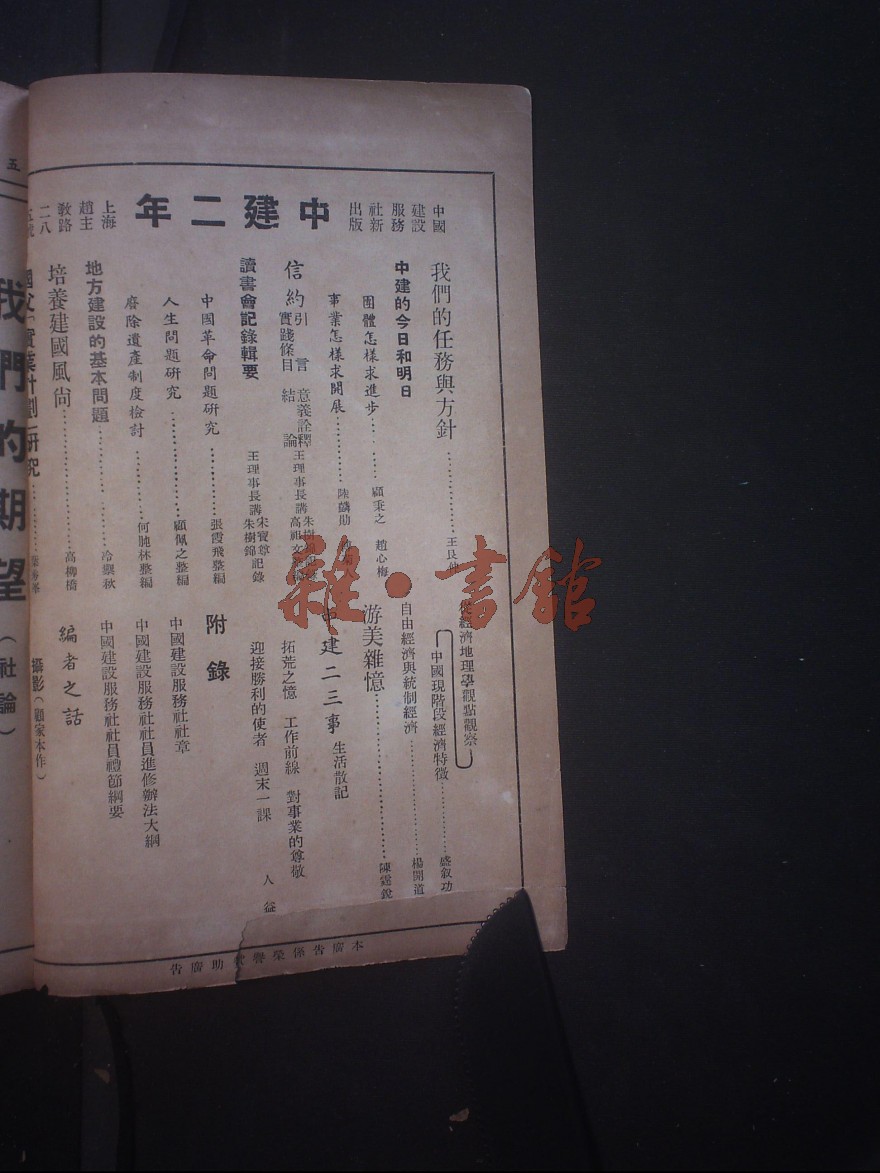 中國建設服務社新出版
中建二年
上海趙主教路二八
我們的任務與方針
中建的今日和明日
團體怎樣求進步 顧秉之 趙心梅
事業怎樣求開展 陸麟勛
信約 引言 意義詮釋 實踐條目 結論 王理事長講
讀書會記錄輯要 王理事長講 宋寶尊 朱樹錦 記錄
中國革命問題研究 張霞飛整編
人生問題研究 顧佩之整編
廢除遺產制度檢討 何肫林整編
地方建設的基本問題 冷禦秋
培養建國風尙 高柳橋
國父「實業計劃」研究
從經濟地理學觀點觀察
中國現階段經濟特徵 盛叙功
自由經濟與統制經濟 楊開道
游美雜憶 陳霆銳
中建二三事 生活散記
拓荒之憶 工作前線 對事業的尊敬
迎接勝利的使者 週末一課 人
附錄
中國建設服務社社章
中國建設服務社社員進修辦法大綱
中國建設服務社社員禮節綱要
編者之話
攝影(顧家本作)
本廣告係榮譽贊助廣告
五
我們的期望(社論)
雜·書館